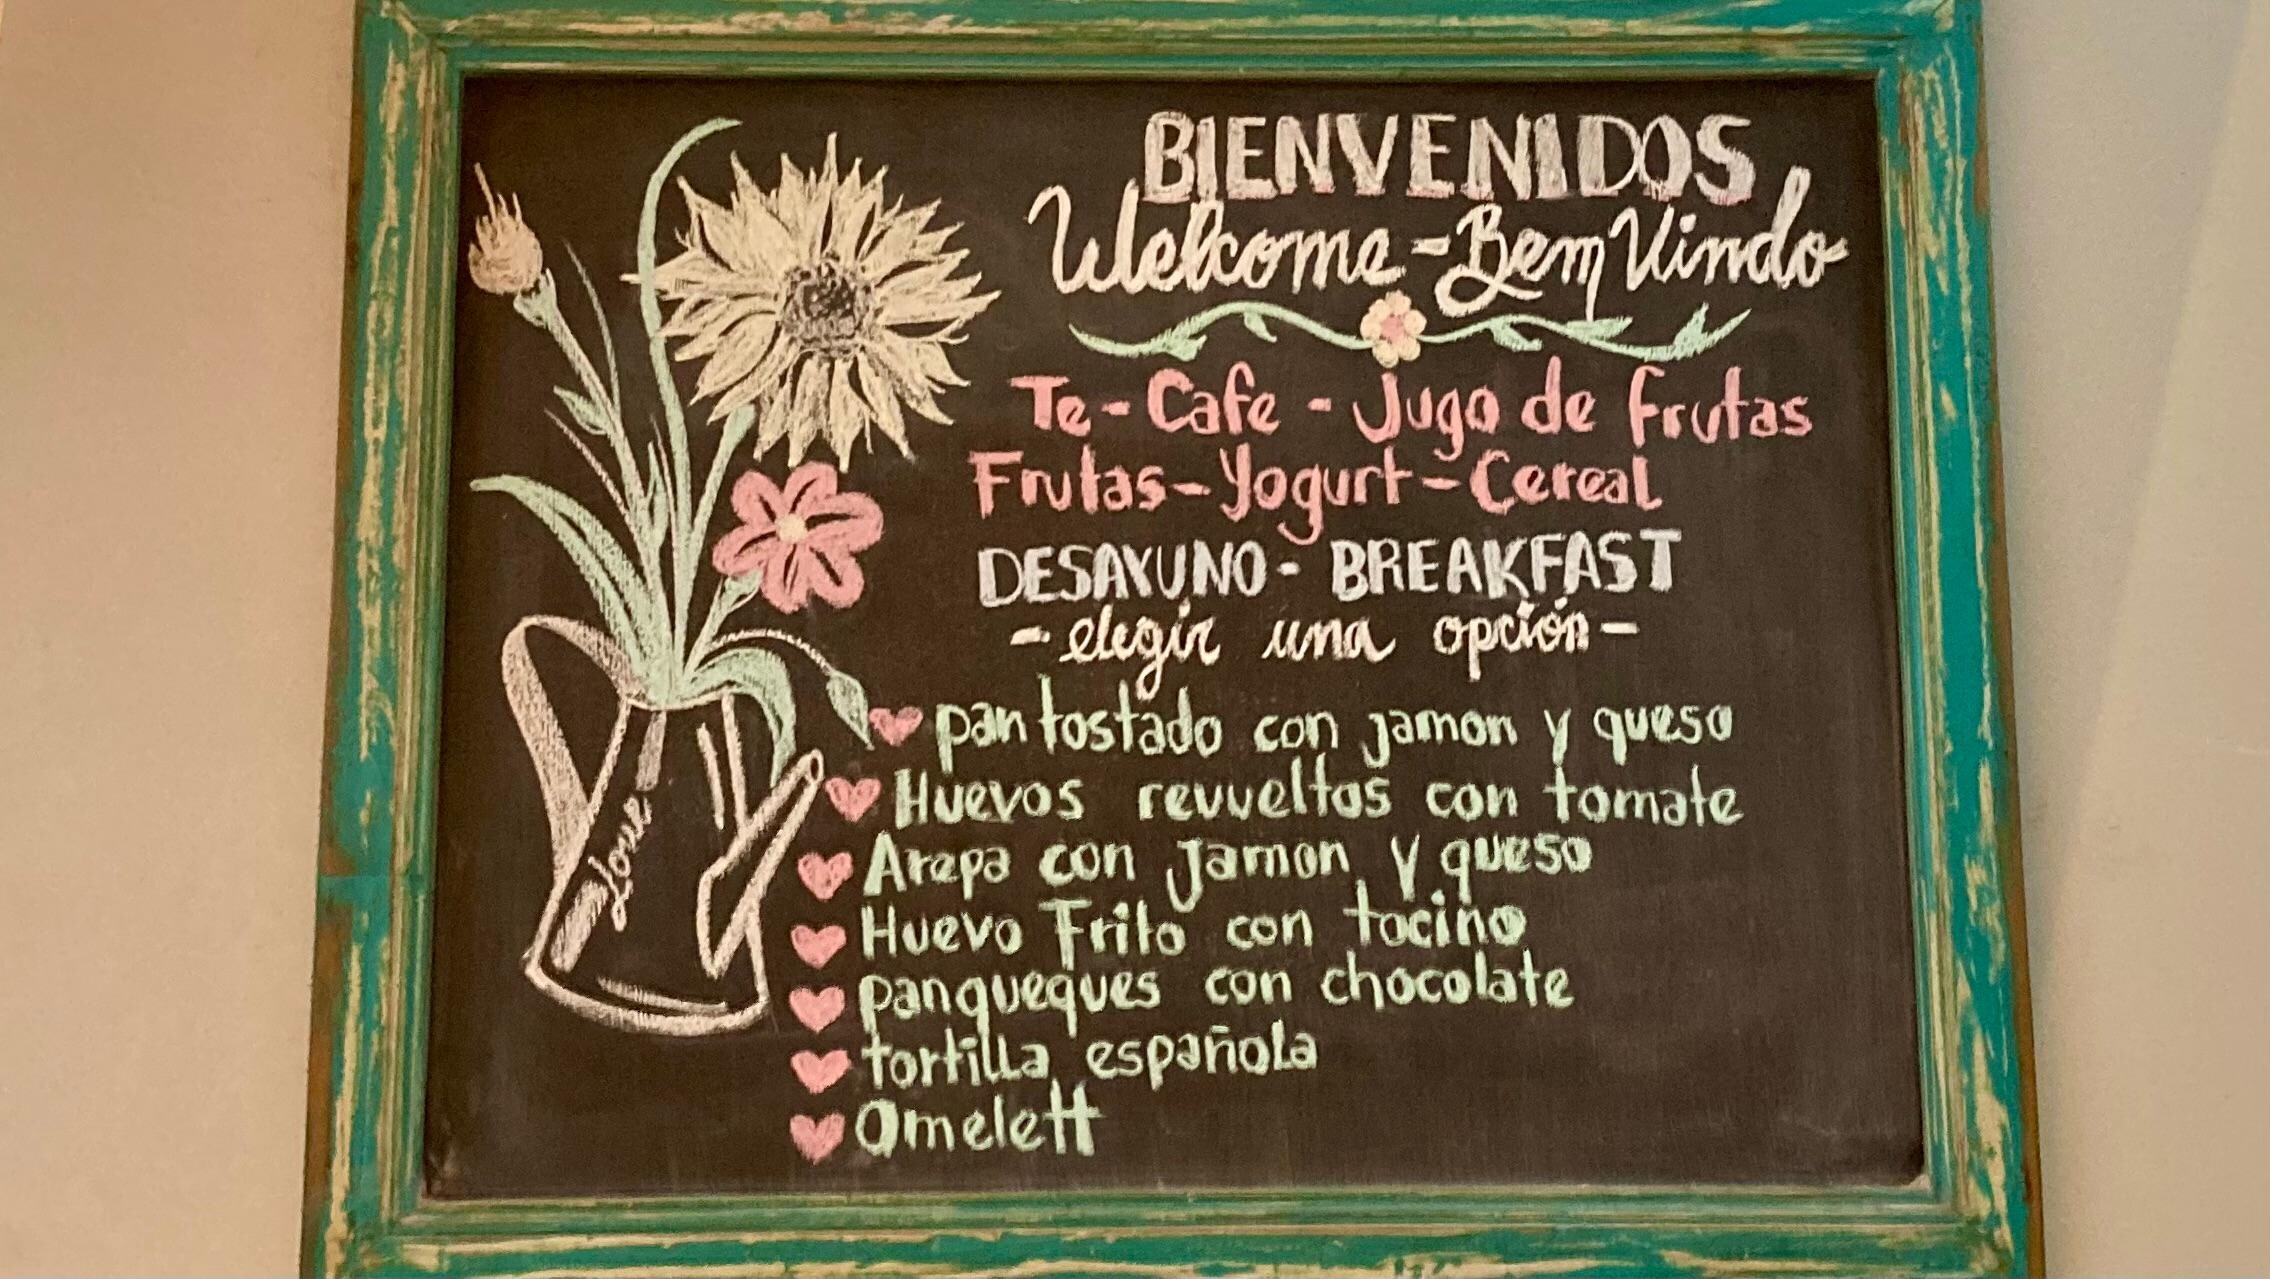 BIENVENIDOS
Welcome - Bem Vindo
Te - Cafe - Jugo de Frutas
Frutas - Yogurt - Cereal
DESAYUNO - BREAKFAST
- elegir una opción -
pan tostado con jamon y queso
Huevos revueltos con tomate
Arepa con Jamon y queso
Huevo Frito con tocino
panqueques con chocolate
tortilla española
Omelett
Love